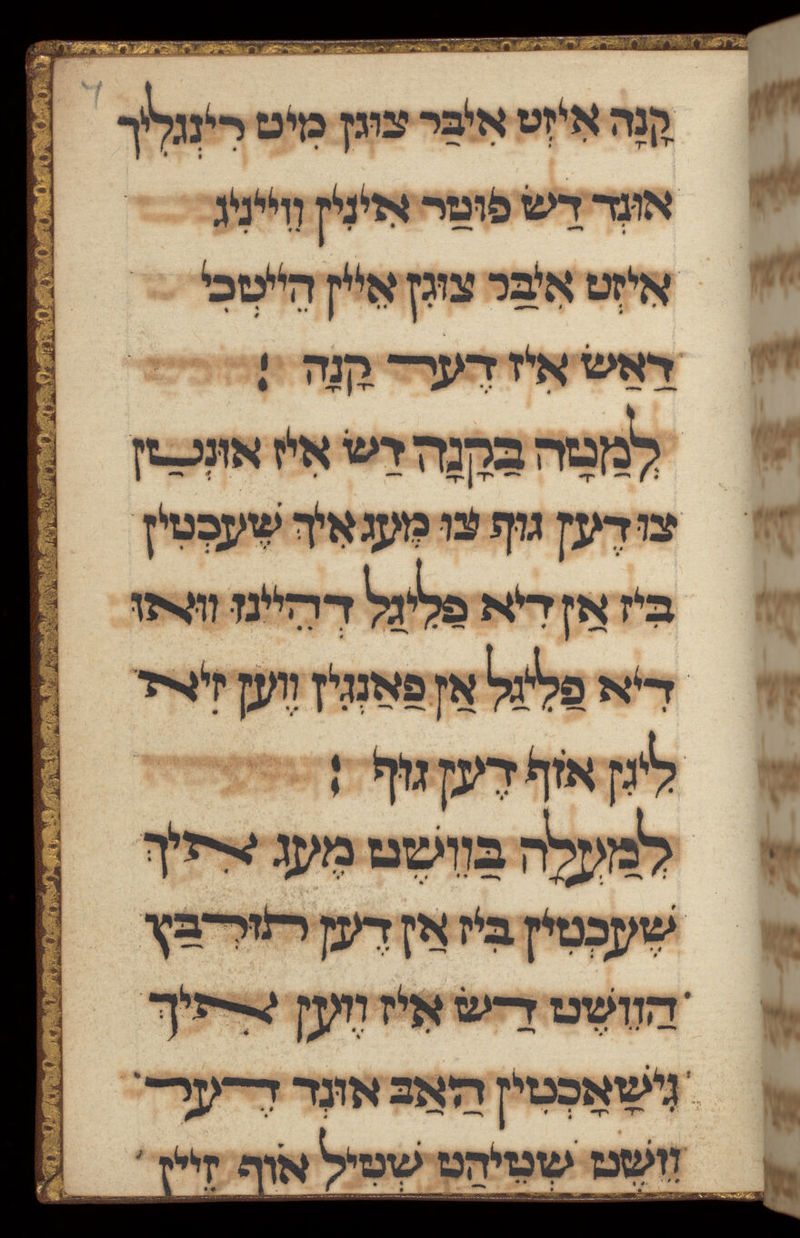 קָנָה אִיזְט אִיבַּר צוּגן מִיט רִינְגְלִיךְ
אוּנְד דַשׂ פוּטַר אִינִין וֵוייניג
אִיזְט אִיבַּר צוּגִן אֵיין הֵייטְכִי
דַאַשׂ אִיז דֶער קָנָה :
לְמַטָה בַּקָנָה דַשׂ אִיז אוּנְטַן
צוּ דֶעןּ גוּף צוּ מֶעג אִיךְ שֶׁעכְטִין
בִּיז אַן דִיא פְלִיגַל דְהֵיינוּ וואוּ
דִיא פְלִיגַל אַן פַאַנְגִין וֶוען זִיא
לִיגִן אוֹף דֶען גוּף :
לְמַעְלָה בַּוֵושֶׁט מֶעג אִיךְ
שֶׁעכְטִין בִּיז אַן דֶען תוּרְבַּץ
הַוֵושֶׁט דַשׂ אִיז וֶוען אִיךְ
גִישָׁאָכְטִין הַאַבּ אוּנְד דֶער
וֵושֶׁט שְׁטֵיהַט שְׁטִיל אוֹף זֵיין